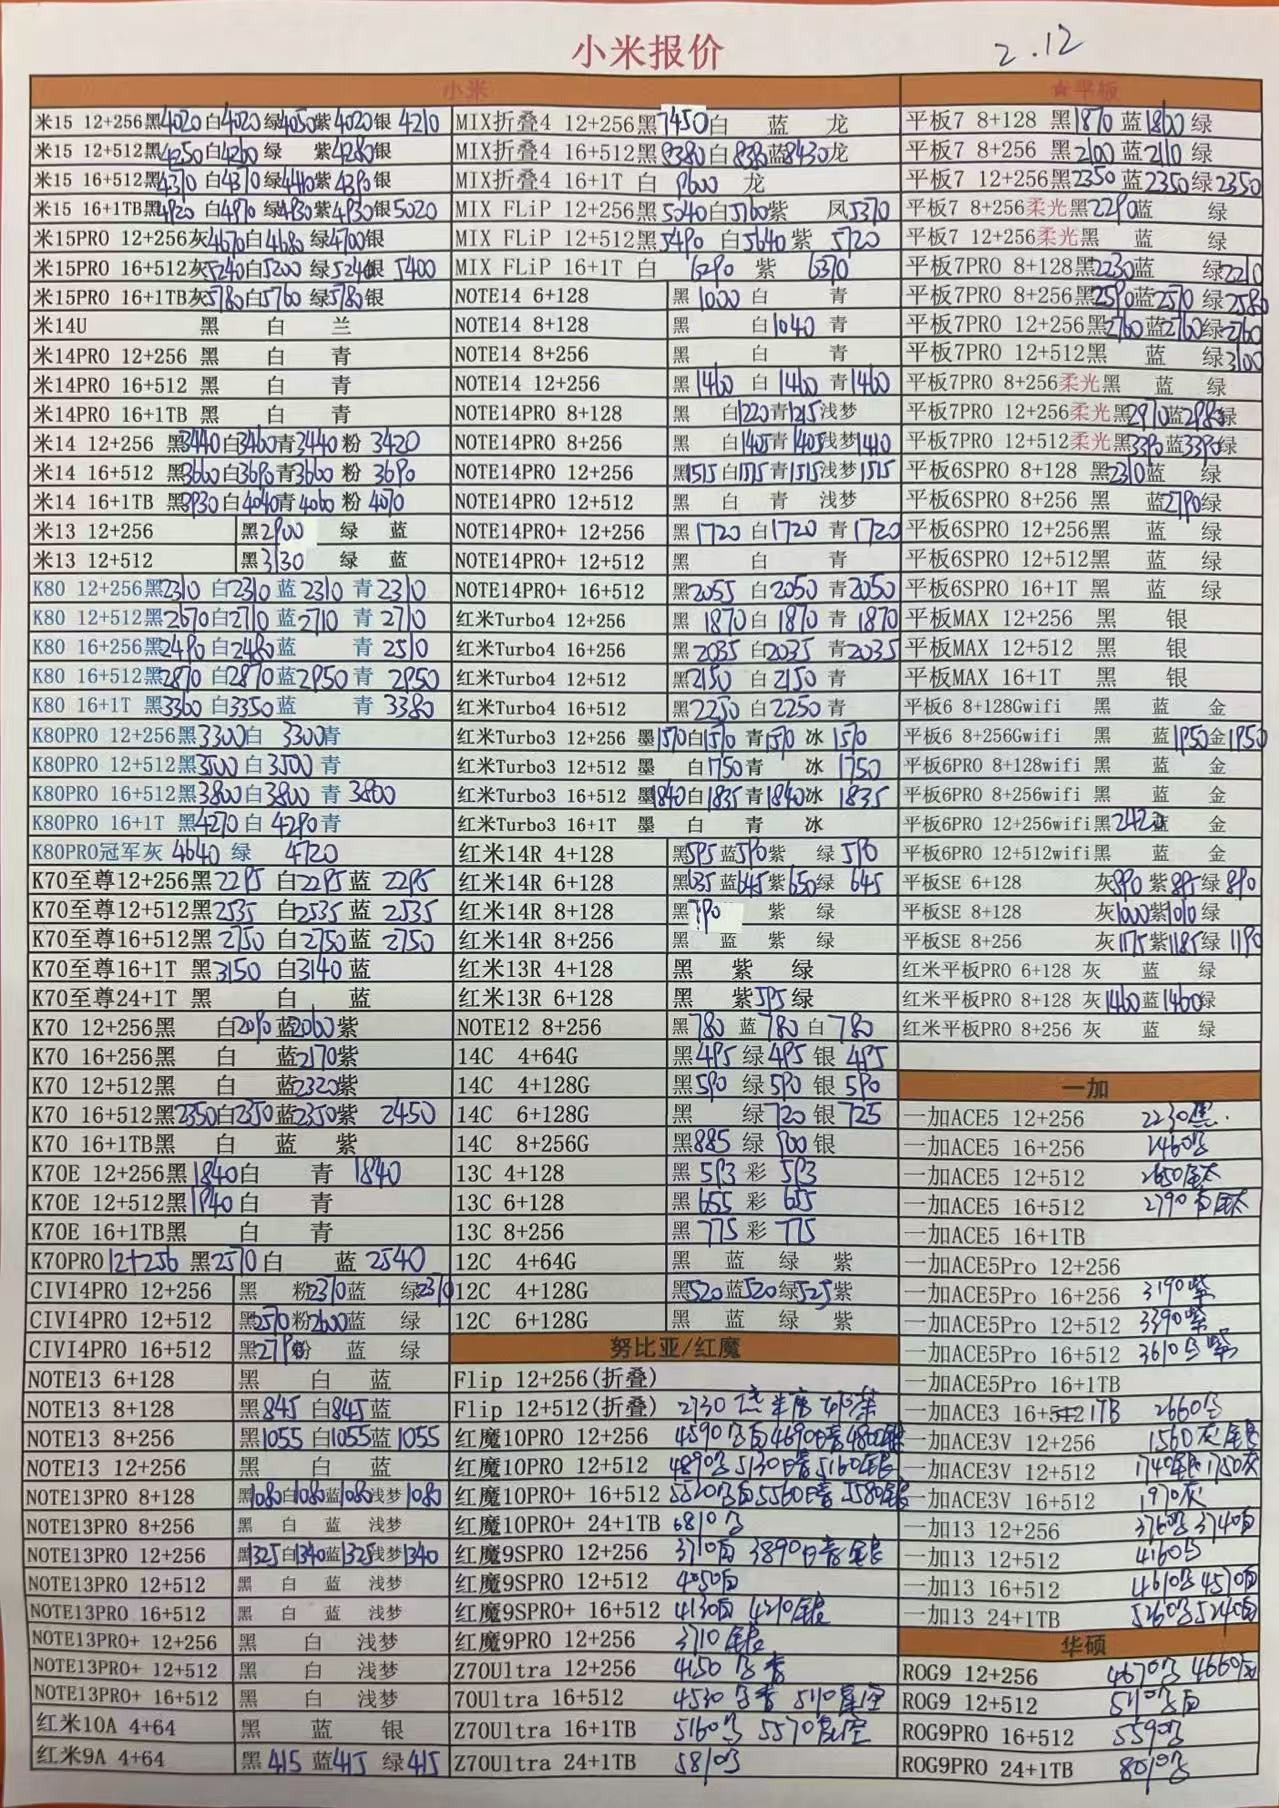 小米报价
2.12
小米
米15 12+256黑4020白4020绿4050紫4020银 4210
米15 12+512黑4250白4260绿 紫4280银
米15 16+512黑4370白4370绿4410紫4390银
米15 16+1TB黑4920 白4970绿4930紫4930银5020
米15PRO 12+256灰4670白4680 绿4700银
米15PRO 16+512灰5240白5200 绿5240银 5400
米15PRO 16+1TB灰5780白5760 绿5780银
米14U 黑 白 兰
米14PRO 12+256 黑 白 青
米14PRO 16+512 黑 白 青
米14PRO 16+1TB 黑 白 青
米14 12+256 黑3440白3460青3440粉 3420
米14 16+512 黑3660白3690青3660粉 3690
米14 16+1TB 黑3930白4040青4060粉 4070
米13 12+256 黑2900 绿 蓝
米13 12+512 黑3130 绿 蓝
K80 12+256黑2310 白2310蓝 2310 青 2310
K80 12+512黑2670白2710蓝2710 青 2710
K80 16+256黑2490白2480蓝 青 2510
K80 16+512黑2870白2870蓝2950青 2950
K80 16+1T 黑3360白3350蓝 青 3380
K80PRO 12+256黑3300白 3300青
K80PRO 12+512黑3500白3500青
K80PRO 16+512黑3800白3800 青 3800
K80PRO 16+1T 黑4270白 4290青
K80PRO冠军灰 4640 绿 4720
K70至尊12+256黑2295 白2295蓝 2295
K70至尊12+512黑2535 白2535蓝 2535
K70至尊16+512黑2750 白2750蓝 2750
K70至尊16+1T 黑3150 白3140蓝
K70至尊24+1T 黑 白 蓝
K70 12+256黑 白2090蓝2060紫
K70 16+256黑 白 蓝2170紫
K70 12+512黑 白 蓝2320紫
K70 16+512黑2350白2350蓝2350紫 2450
K70 16+1TB黑 白 蓝 紫
K70E 12+256黑1840白 青 1840
K70E 12+512黑1940白 青
K70E 16+1TB黑 白 青
K70PRO12+256 黑2570白 蓝 2540
CIVI4PRO 12+256 黑 粉2370蓝 绿2370
CIVI4PRO 12+512 黑2570粉2600蓝 绿
CIVI4PRO 16+512 黑2790粉 蓝 绿
NOTE13 6+128 黑 白 蓝
NOTE13 8+128 黑845 白845蓝
NOTE13 8+256 黑1055白1055蓝1055
NOTE13 12+256 黑 白 蓝
NOTE13PRO 8+128 黑1080白1080蓝1080浅梦1080
NOTE13PRO 8+256 黑 白 蓝 浅梦
NOTE13PRO 12+256 黑1325白1340蓝1325浅梦1340
NOTE13PRO 12+512 黑 白 蓝 浅梦
NOTE13PRO 16+512 黑 白 蓝 浅梦
NOTE13PRO+ 12+256 黑 白 浅梦
NOTE13PRO+ 12+512 黑 白 浅梦
NOTE13PRO+ 16+512 黑 白 浅梦
红米10A 4+64 黑 蓝 银
红米9A 4+64 黑415 蓝415 绿415
MIX折叠4 12+256黑7450白 蓝 龙
MIX折叠4 16+512黑8380白8380蓝8430龙
MIX折叠4 16+1T 白 9600 龙
MIX FLiP 12+256黑5040白5160紫 凤5370
MIX FLiP 12+512黑5490 白5640紫 5720
MIX FLiP 16+1T 白 6290 紫 6370
NOTE14 6+128 黑1000白 青
NOTE14 8+128 黑 白1040 青
NOTE14 8+256 黑 白 青
NOTE14 12+256 黑1460 白1460青1460
NOTE14PRO 8+128 黑 白1220青1215浅梦
NOTE14PRO 8+256 黑 白1405青1405浅梦1410
NOTE14PRO 12+256 黑1515白1515青1515浅梦1515
NOTE14PRO 12+512 黑 白 青 浅梦
NOTE14PRO+ 12+256 黑1720白1720青1720
NOTE14PRO+ 12+512 黑 白 青
NOTE14PRO+ 16+512 黑2055 白2050青2050
红米Turbo4 12+256 黑 1870白1870 青1870
红米Turbo4 16+256 黑2035 白2035 青2035
红米Turbo4 12+512 黑2150 白2150青
红米Turbo4 16+512 黑2250 白2250青
红米Turbo3 12+256 墨1570白1570青1570 冰 1570
红米Turbo3 12+512 墨 白1750青 冰 1750
红米Turbo3 16+512 墨1840白1835青1840冰 1835
红米Turbo3 16+1T 墨 白 青 冰
红米14R 4+128 黑595蓝590紫 绿590
红米14R 6+128 黑635蓝645紫650绿 645
红米14R 8+128 黑790 紫 绿
红米14R 8+256 黑 蓝 紫 绿
红米13R 4+128 黑 紫 绿
红米13R 6+128 黑 紫595绿
NOTE12 8+256 黑780 蓝780白780
14C 4+64G 黑495绿495银495
14C 4+128G 黑590 绿590银590
14C 6+128G 黑 绿720银725
14C 8+256G 黑885绿900银
13C 4+128 黑593彩 593
13C 6+128 黑655 彩 655
13C 8+256 黑775彩 775
12C 4+64G 黑 蓝 绿 紫
12C 4+128G 黑520蓝520绿525紫
12C 6+128G 黑 蓝 绿 紫
努比亚/红魔
Flip 12+256(折叠)
Flip 12+512(折叠) 2730
红魔10PRO 12+256 4590
红魔10PRO 12+512 4890 5130 5160
红魔10PRO+ 16+512 5520 5560 5580
红魔10PRO+ 24+1TB 6810
红魔9SPRO 12+256 3710白 3890
红魔9SPRO 12+512 4050白
红魔9SPRO+ 16+512 4130白 4210银
红魔9PRO 12+256 3710银
Z70Ultra 12+256 4150
70Ultra 16+512 4530 5110星空
Z70Ultra 16+1TB 5160 5570星空
Z70Ultra 24+1TB 5810
★平板
平板7 8+128 黑1870蓝1860绿
平板7 8+256 黑2100蓝2110绿
平板7 12+256黑2350蓝2350绿2350
平板7 8+256柔光黑2290蓝 绿
平板7 12+256柔光黑 蓝 绿
平板7PRO 8+128黑2230蓝 绿2210
平板7PRO 8+256黑2590蓝2570 绿2580
平板7PRO 12+256黑2760蓝2760绿2760
平板7PRO 12+512黑 蓝 绿3100
平板7PRO 8+256柔光黑 蓝 绿
平板7PRO 12+256柔光黑2970蓝2985绿
平板7PRO 12+512柔光黑3390蓝3390绿
平板6SPRO 8+128 黑2310蓝 绿
平板6SPRO 8+256 黑 蓝2790绿
平板6SPRO 12+256黑 蓝 绿
平板6SPRO 12+512黑 蓝 绿
平板6SPRO 16+1T 黑 蓝 绿
平板MAX 12+256 黑 银
平板MAX 12+512 黑 银
平板MAX 16+1T 黑 银
平板6 8+128Gwifi 黑 蓝 金
平板6 8+256Gwifi 黑 蓝1950金1950
平板6PRO 8+128wifi 黑 蓝 金
平板6PRO 8+256wifi 黑 蓝 金
平板6PRO 12+256wifi黑2420蓝 金
平板6PRO 12+512wifi黑 蓝 金
平板SE 6+128 灰890紫895绿890
平板SE 8+128 灰1000紫1010绿
平板SE 8+256 灰1175紫1185绿1190
红米平板PRO 6+128 灰 蓝 绿
红米平板PRO 8+128 灰1460蓝1460绿
红米平板PRO 8+256 灰 蓝 绿
一加
一加ACE5 12+256 2230黑
一加ACE5 16+256 2460
一加ACE5 12+512 2650钛
一加ACE5 16+512 2790
一加ACE5 16+1TB
一加ACE5Pro 12+256
一加ACE5Pro 16+256 3190紫
一加ACE5Pro 12+512 3390紫
一加ACE5Pro 16+512 3610 紫
一加ACE5Pro 16+1TB
一加ACE3 2660
一加ACE3V 12+256 1560灰
一加ACE3V 12+512 1740 1750灰
一加ACE3V 16+512 1970灰
一加13 12+256 3760 3740白
一加13 12+512 4160
一加13 16+512 4610 4570白
一加13 24+1TB 5260 5240白
华硕
ROG9 12+256 4670 4660白
ROG9 12+512 5110 白
ROG9PRO 16+512 5590
ROG9PRO 24+1TB 8010